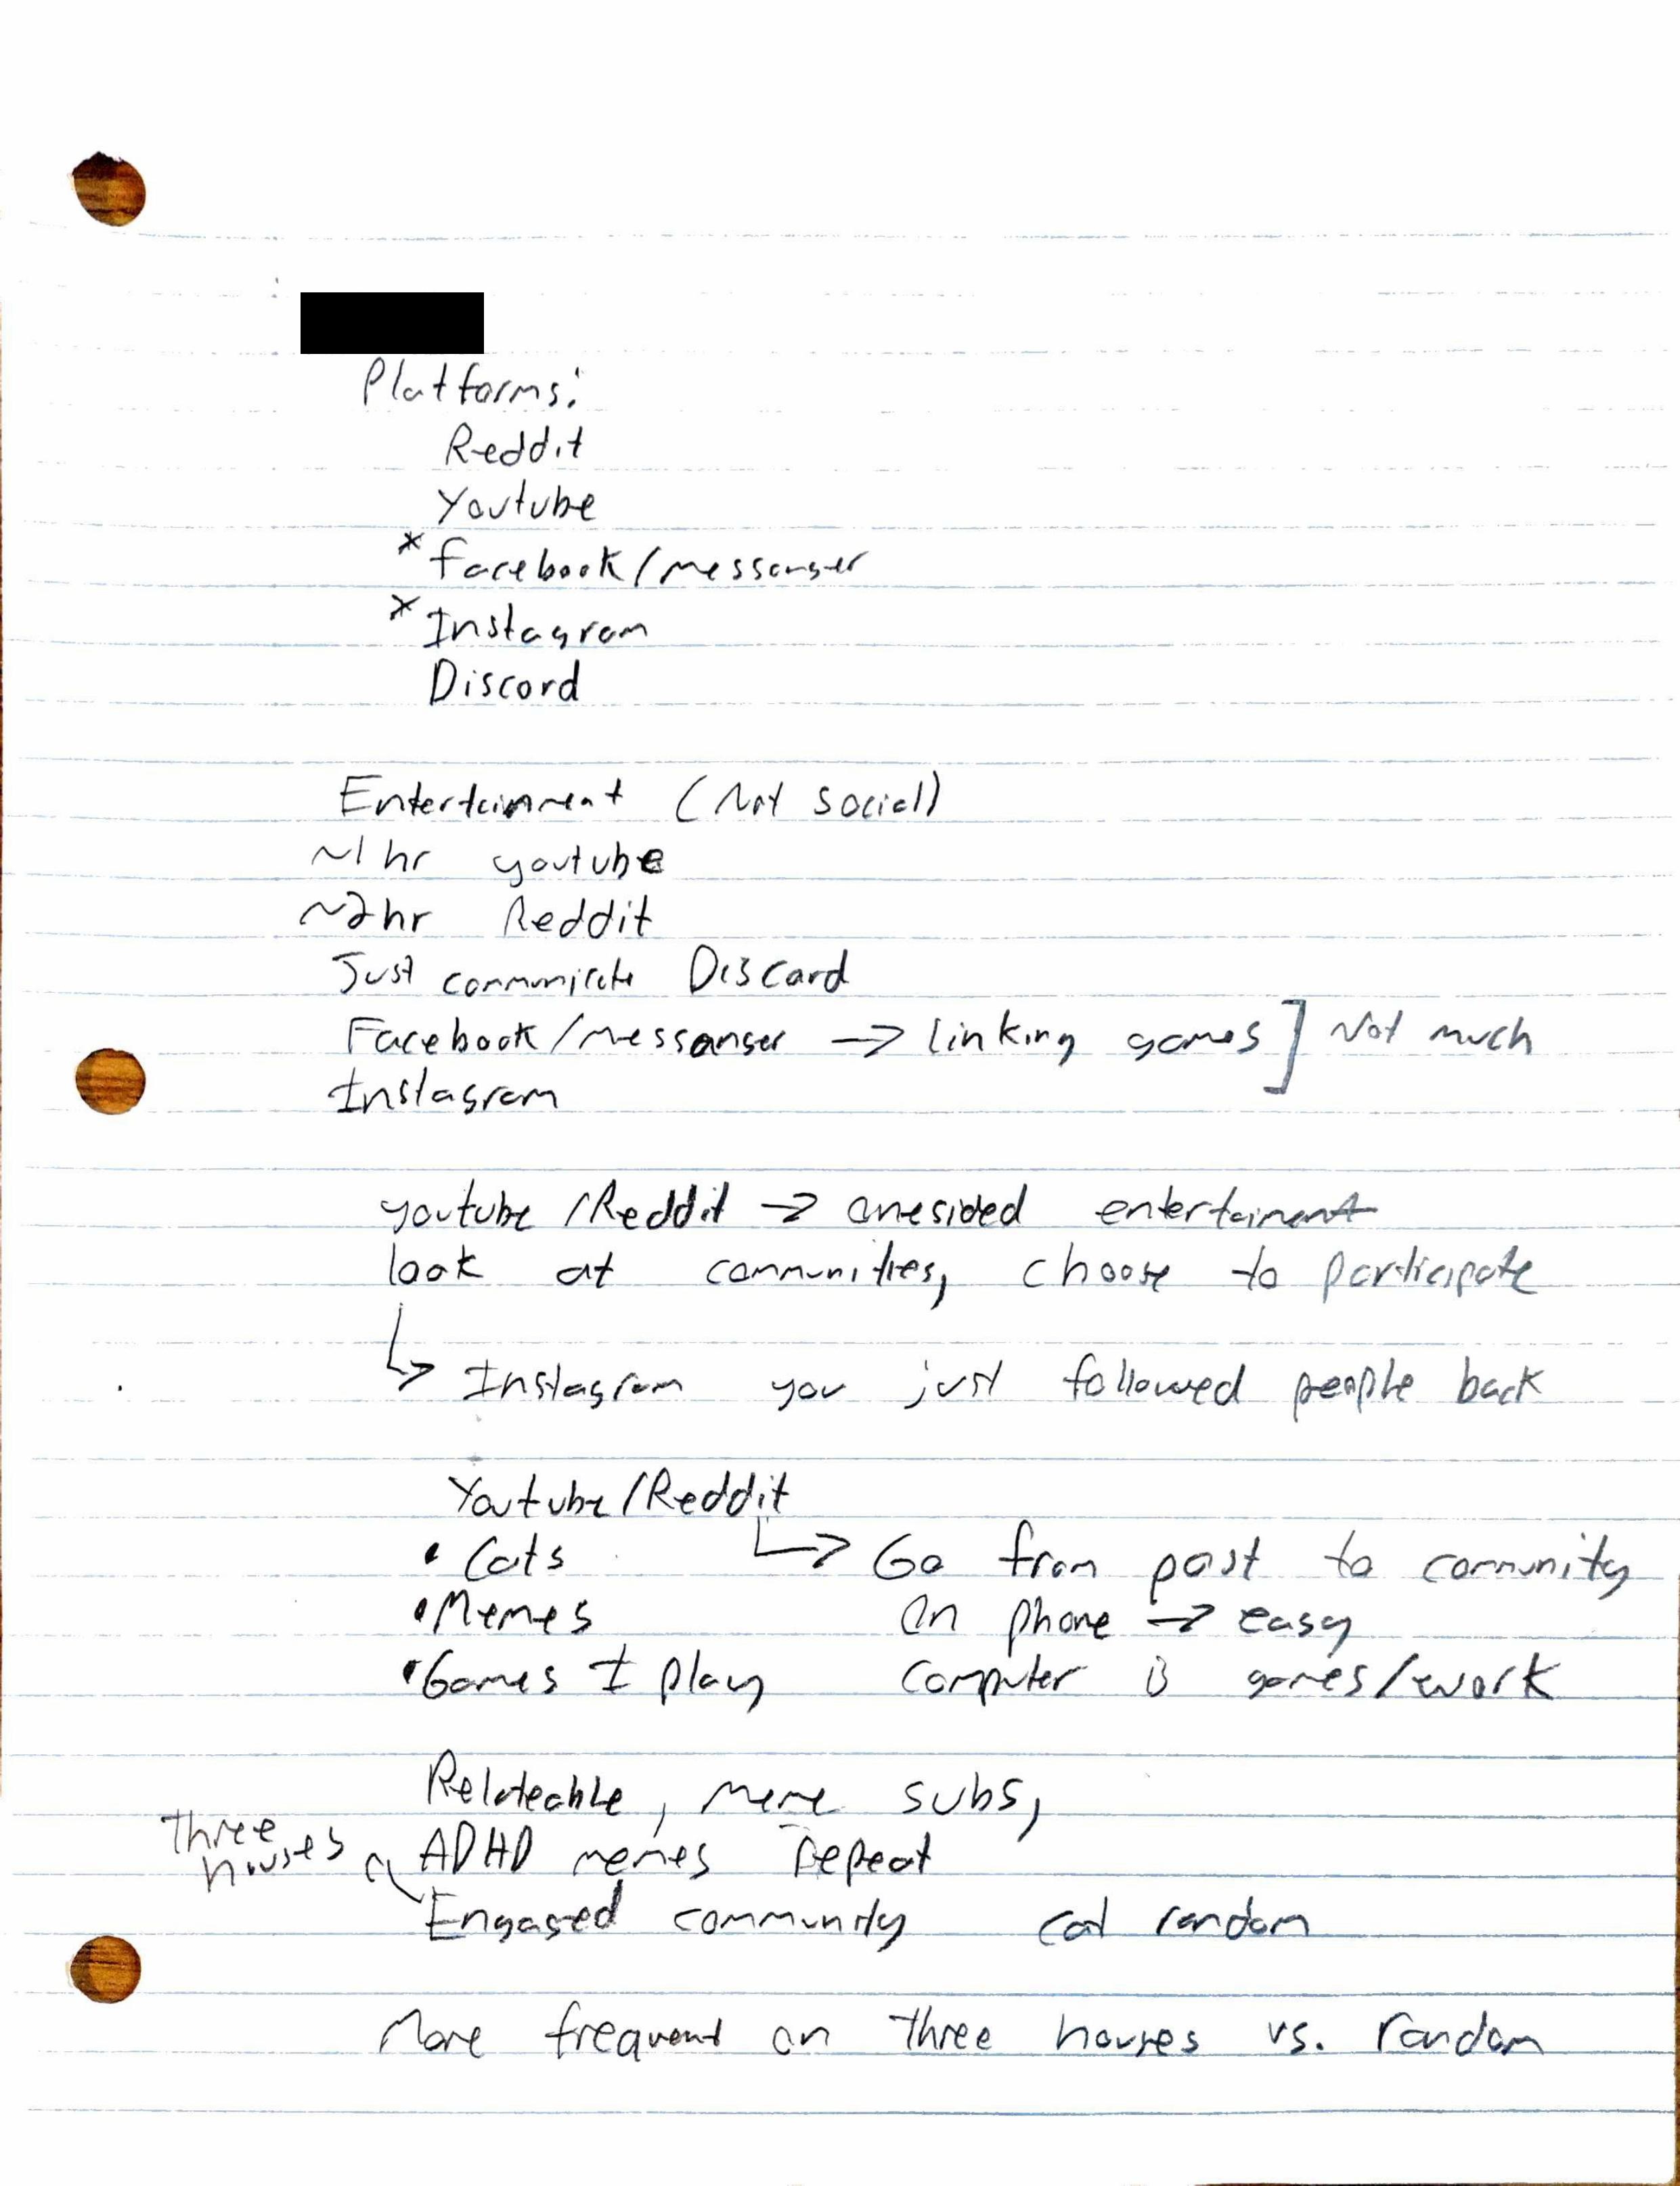 Platforms:
Reddit
Youtube
* Facebook/messanger
* Instagram
Discord
Entertainment (Not social)
~1 hr youtube
~2hr Reddit
Just communicate Discord
Facebook/messanger → linking games ] Not much
Instagram
youtube/Reddit → onesided entertainment
look at communities, choose to participate
↳ Instagram you just followed people back
Youtube/Reddit
• Cats ↳ Go from post to community
• Memes On phone → easy
• Games I play Computer is games/work
Relateable, meme subs,
Three houses
ADHD memes repeat
Engaged community cat random
More frequent on Three houses vs. random